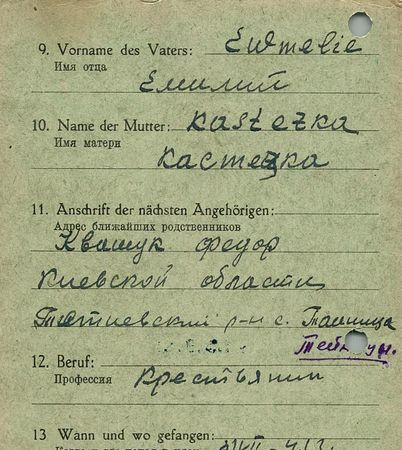 9. Vorname des Vaters:
Имя отца
Емилий
10. Name der Mutter: Kastezka
Имя матери
Кастецка
11. Anschrift der nächsten Angehörigen:
Адрес ближайших родственников
Квашук федор
Киевской области
Тетиевский р-н с. Ташлица
12. Beruf:
Профессия Крестьянин
13 Wann und wo gefangen: